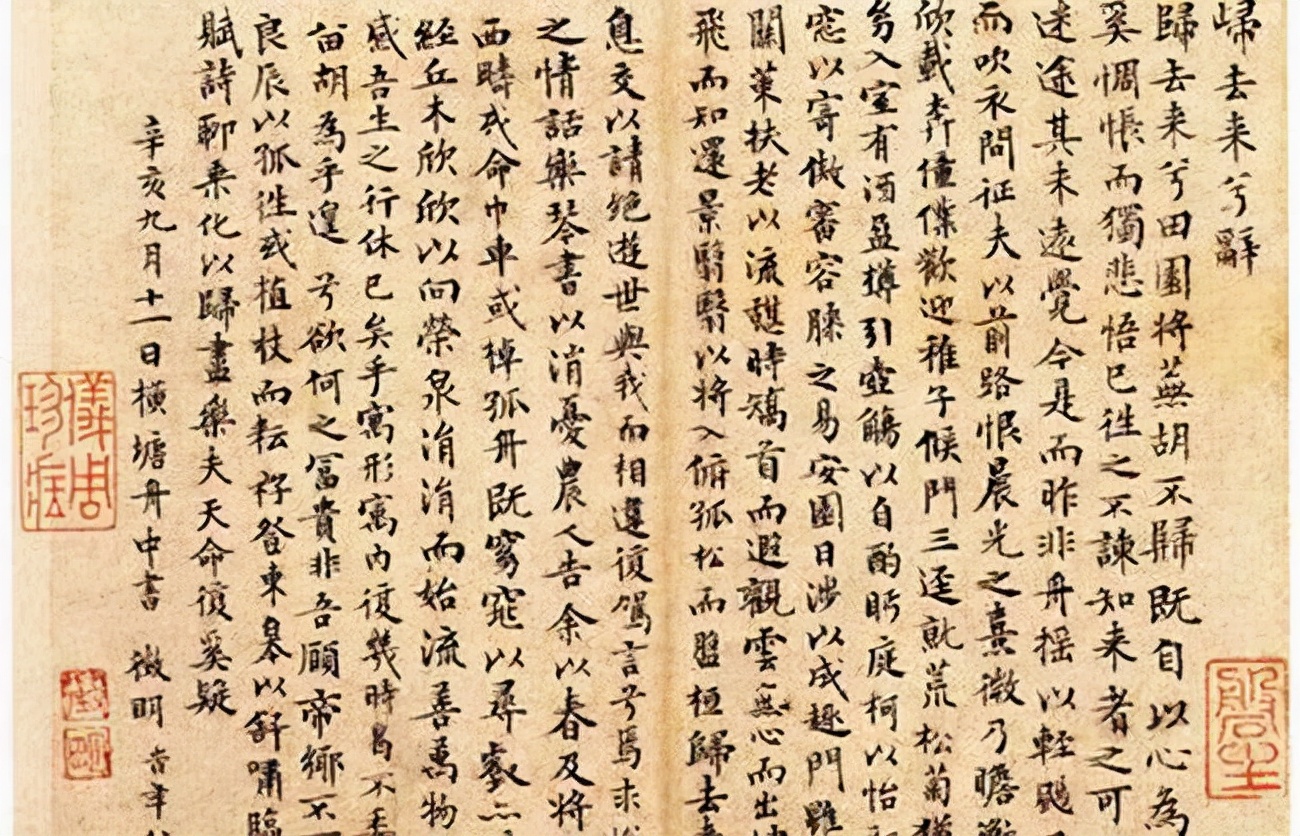 歸去来兮辭
歸去来兮田園将蕪胡不歸既自以心為
奚惆悵而獨悲悟已往之不諫知来者之可
迷途其未遠覺今是而昨非舟摇以輕颺
而吹衣問征夫以前路恨晨光之熹微乃瞻
欣載奔僮僕歡迎稚子候門三逕就荒松菊猶
幼入室有酒盈樽引壺觴以自酌眄庭柯以怡
窓以寄傲審容膝之易安園日涉以成趣門雖
關策扶老以流憩時矯首而遐觀雲無心而出
飛而知還景翳翳以将入俯孤松而盤桓歸去
息交以請絶遊世與我而相遺復駕言兮焉求
之情話樂琴書以消憂農人告余以春及将
西疇或命巾車或棹孤舟既窈窕以尋壑
經丘木欣欣以向榮泉涓涓而始流善萬物
感吾生之行休已矣乎寓形寓内復幾時曷不委
留胡為乎遑兮欲何之富貴非吾願帝鄉不
良辰以孤往或植杖而耘耔登東皋以舒嘯臨
賦詩聊乘化以歸盡樂夫天命復奚疑
辛亥九月十一日横塘舟中書 徵明 時年
儀周珍藏
徵明